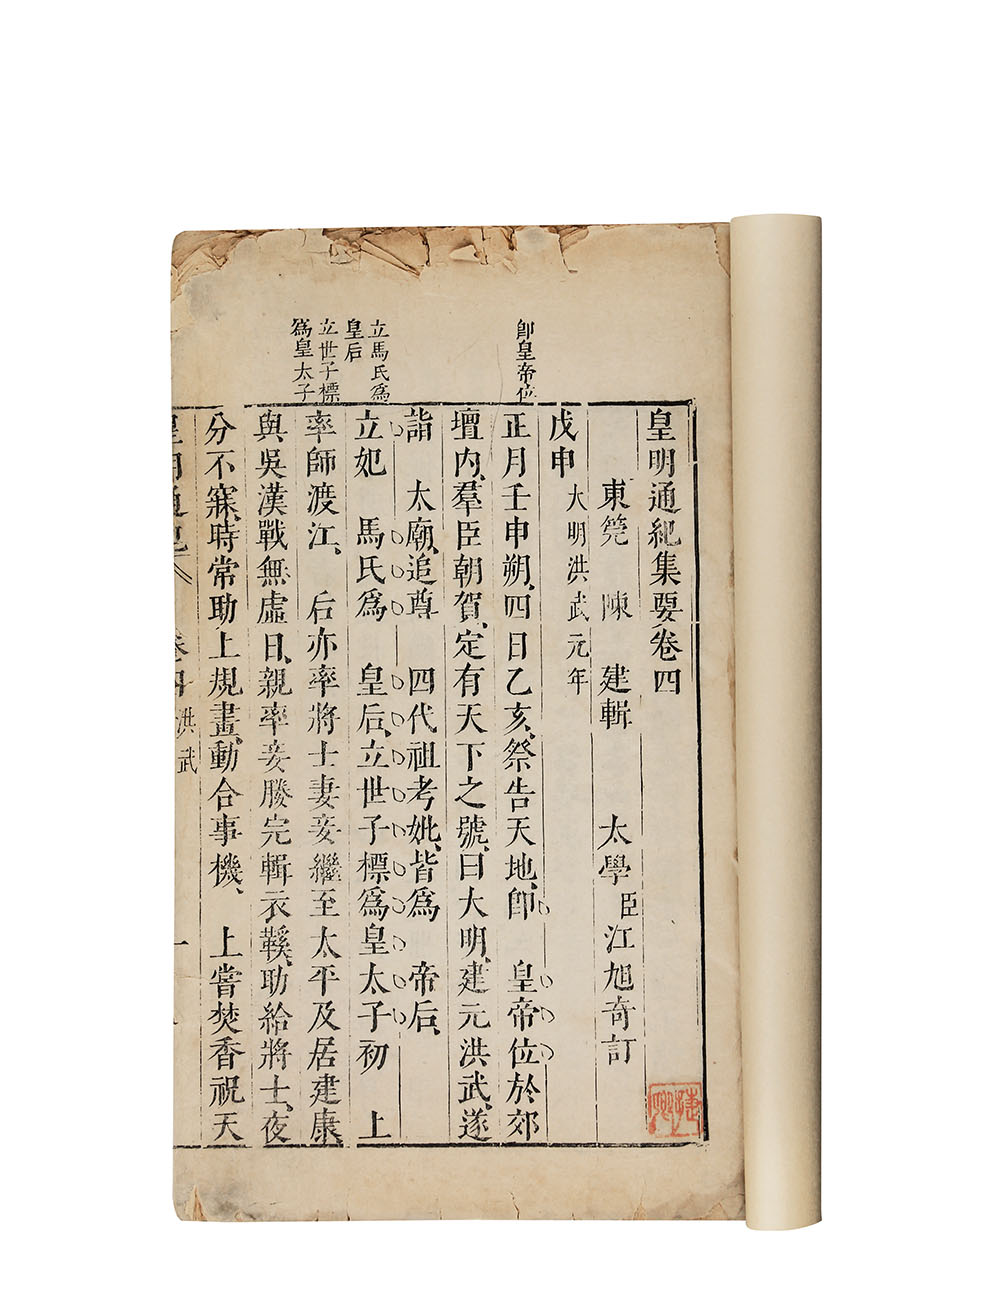 皇明通紀集要卷四
東筦　陳　建輯　　太學臣江旭奇訂
戊申　大明洪武元年
即皇帝位
正月壬申朔、四日乙亥、祭告天地、卽　皇帝位於郊
壇内、羣臣朝賀、定有天下之號、曰大明、建元洪武、遂
詣　太廟、追尊　四代祖考妣、皆爲　帝后、
立馬氏爲
皇后
立世子標
爲皇太子
立妃　馬氏爲　皇后、立世子標爲皇太子初　上
率師渡江、　后亦率將士妻妾繼至太平及居建康、
與吳漢戰無虛日、親率妾媵完輯衣鞵、助給將士、夜
分不寐、時常助上規畫、動合事機、　上嘗焚香祝天
皇明通紀　卷四　洪武　一